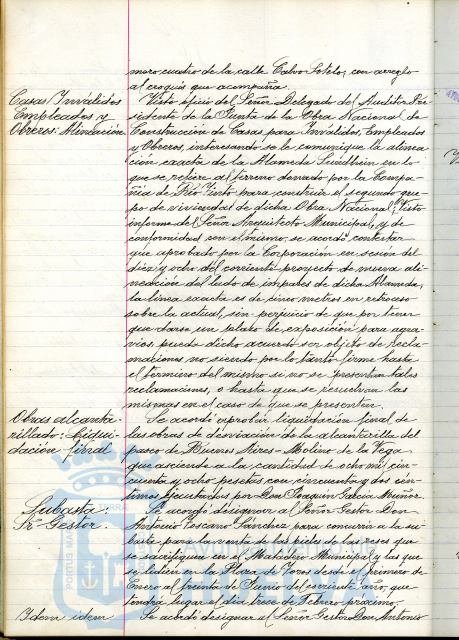 mero cuatro de la calle Calvo Sotelo, con arreglo
al croquis que acompaña.
Casas Inválidos
Empleados y
Obreros: Alineación
Visto oficio del Señor Delegado del Auditor Pre-
sidente de la Junta de la Obra Nacional de
Construcción de Casas para Inválidos, Empleados
y Obreros, interesando se le comunique la alinea-
ción exacta de la Alameda Sundheim en lo
que se refiere al terreno donado por la Compa-
ñia de Rio Tinto para construir el segundo gru-
po de viviendas de dicha Obra Nacional; Visto
informe del Señor Arquitecto Municipal, y de
conformidad con el mismo se acordó contestar
que aprobado por la Corporación en sesión del
diez y ocho del corriente proyecto de nueva ali-
neación del lado de impares de dicha Alameda,
la línea exacta es de cinco metros en retroceso
sobre la actual, sin perjuicio de que por tener
que darse un plazo de exposición para agra-
vios, puede dicho acuerdo ser objeto de recla-
maciones no siendo por lo tanto firme hasta
el término del mismo si no se presentan tales
reclamaciones, o hasta que se resuelvan las
mismas en el caso de que se presenten.
Obras alcanta-
rillado: Liqui-
dación final
Se acordó aprobar liquidación final de
las obras de desviación de la alcantarilla del
paseo de Buenos Aires - Molino de la Vega
que asciende a la cantidad de ocho mil cin-
cuenta y ocho pesetas con cincuenta y dos cén-
timos ejecutadas por Don Joaquin Garcia Muñoz.
Subasta:
Sr. Gestor.
Se acordó designar al Señor Gestor Don
Antonio Toscano Sánchez para concurrir a la su-
basta para la venta de las pieles de las reses que
se sacrifiquen en el Matadero Municipal y las que
se lidien en la Plaza de Toros desde el primero de
Enero al treinta de Junio del corriente año, que
tendrá lugar el día trece de Febrero próximo.
Idem idem
Se acordó designar al Señor Gestor Don Antonio